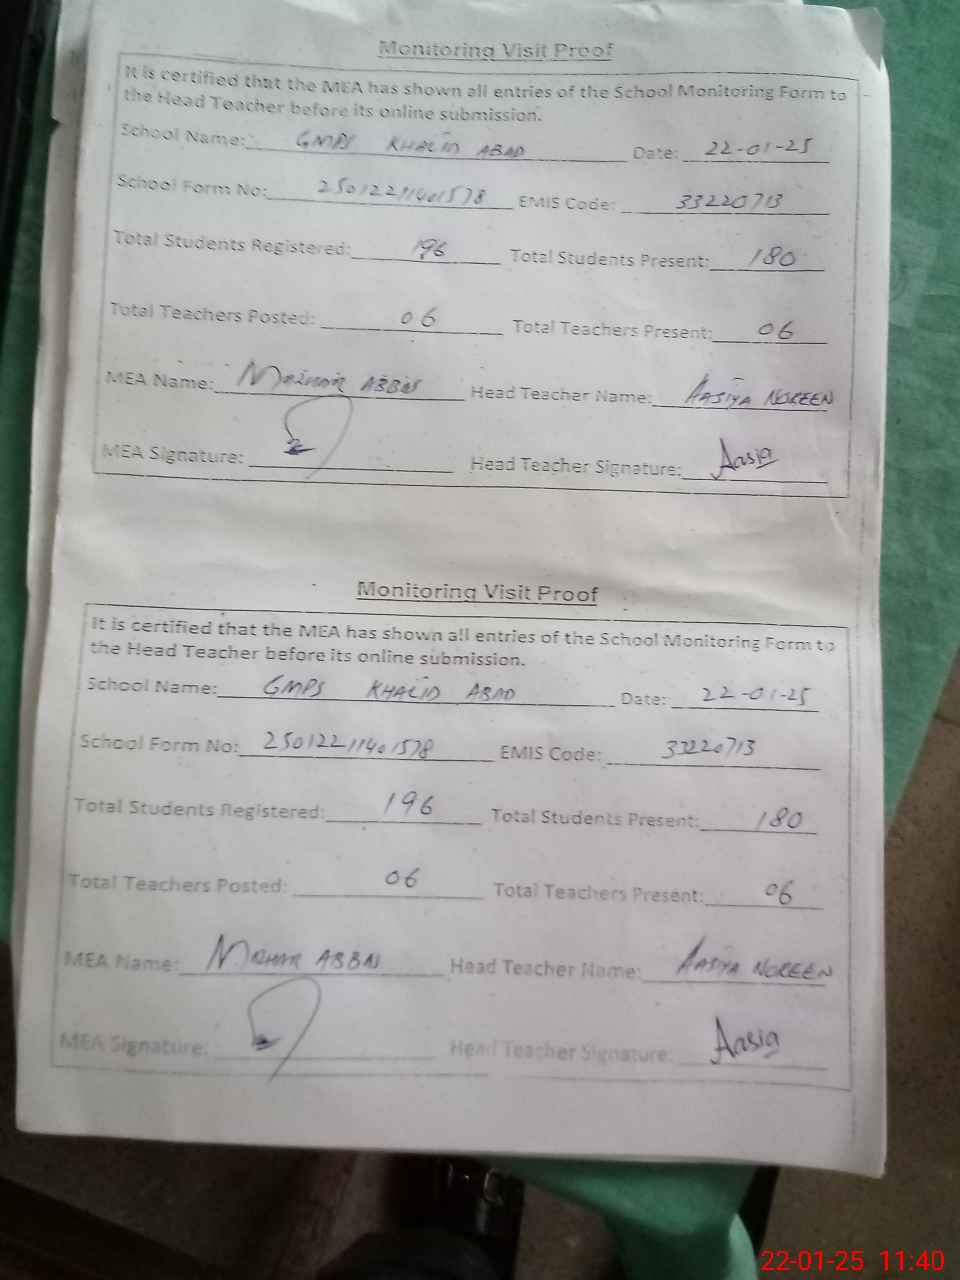 Monitoring Visit Proof
It is certified that the MEA has shown all entries of the School Monitoring Form to
the Head Teacher before its online submission.
School Name: GMPS KHALID ABAD Date: 22-01-25
School Form No: 25012211401578 EMIS Code: 33220713
Total Students Registered: 196 Total Students Present: 180
Total Teachers Posted: 06 Total Teachers Present: 06
MEA Name: ABBAS Head Teacher Name: AASIYA NOREEN
MEA Signature: Head Teacher Signature: Aasia
Monitoring Visit Proof
It is certified that the MEA has shown all entries of the School Monitoring Form to
the Head Teacher before its online submission.
School Name: GMPS KHALID ABAD Date: 22-01-25
School Form No: 25012211401578 EMIS Code: 33220713
Total Students Registered: 196 Total Students Present: 180
Total Teachers Posted: 06 Total Teachers Present: 06
MEA Name: ABBAS Head Teacher Name: AASIYA NOREEN
MEA Signature: Head Teacher Signature: Aasia
22-01-25 11:40